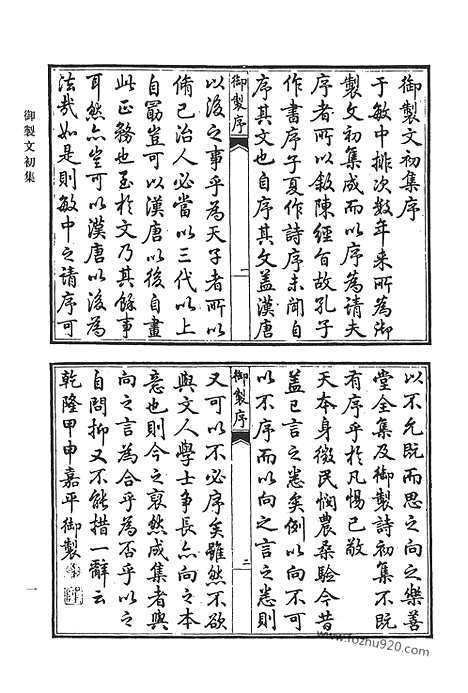 御製文初集序
于敏中排次數年來所為御
製文初集成而以序為請夫
序者所以敘陳經旨故孔子
作書序子夏作詩序未聞自
序其文也自序其文蓋漢唐
御製序
一
以後之事乎為天子者所以
脩已治人必當以三代以上
自勗豈可以漢唐以後自畫
此正務也至於文乃其餘事
耳然亦豈可以漢唐以後為
法哉如是則敏中之請序可
以不允既而思之向之樂善
堂全集及御製詩初集不既
有序乎於凡惕已敬
天本身徵民憫農桑驗今昔
蓋已言之悉矣例以向不可
以不序而以向之言之悉則
御製序
二
又可以不必序矣雖然不欲
與文人學士爭長亦向之本
意也則今之裒然成集者與
向之言為合乎為否乎以之
自問抑又不能措一辭云
乾隆甲申嘉平御製
御製文初集
一
www.fozhu920.com